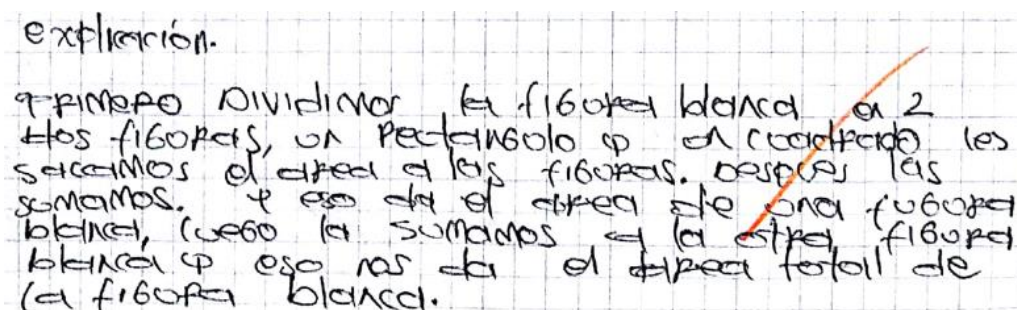 explicación.
PRIMERO DIVIDIMOS la figura blanca en 2
figuras, un Rectangulo y un cuadrado les
sacamos el area a las figuras. Después las
sumamos. Y eso da el area de una fugura
blanca, luego la sumamos a la otra figura
blanca y eso nos da el area total de
la figura blanca.